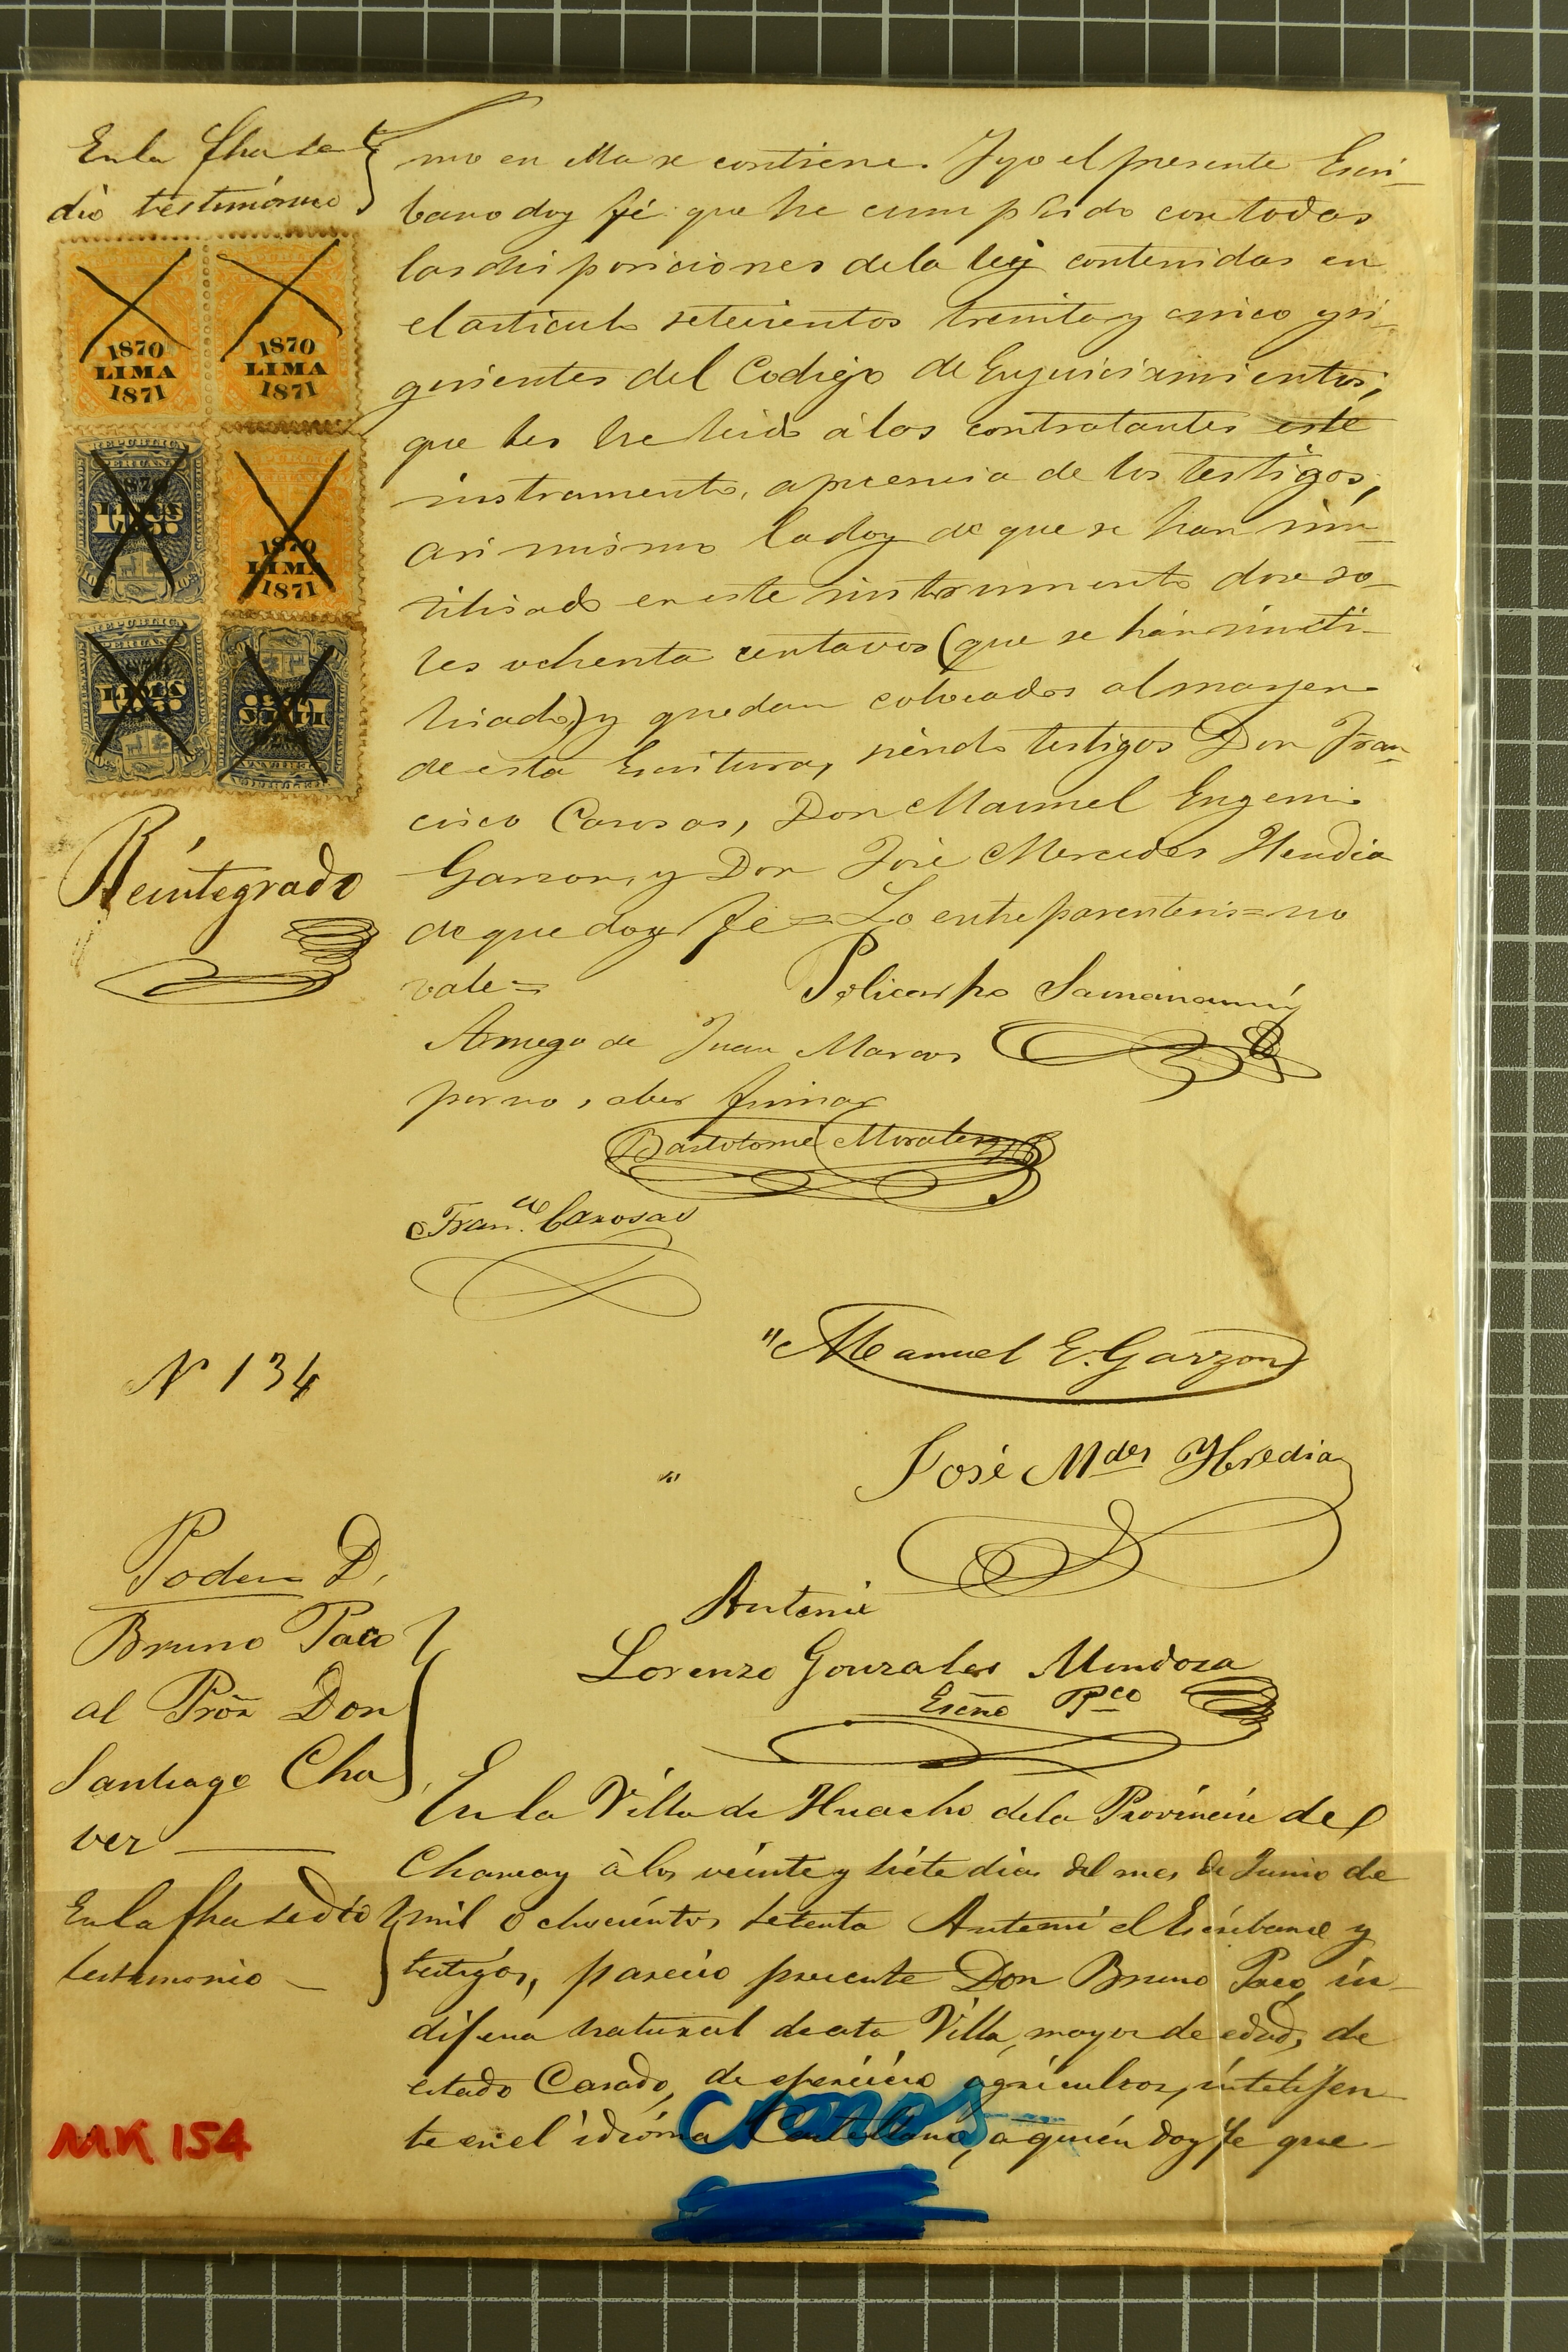 En la fha se
dió testimonio
mo en ella se contiene. Y yo el presente Escri-
bano doy fé que he cumplido con todas
las disposiciones de la ley contenidas en
el articulo setecientos treinta y cinco y si-
guientes del Codigo de Enjuiciamientos,
que les he leido á los contratantes este
instrumento, a presencia de los testigos,
asi mismo la doy de que se han inu-
tilisado en este instrumento doce so-
les ochenta centavos (que se hán inuti-
lisado) y quedan colocados al margen
de esta Escritura, siendo testigos Don Fran-
cisco Carosas, Don Manuel Eugenio
Garzon, y Don José Mercedes Heredia
de que doy fe = Lo entre parentesis = no
vale =
1870
LIMA
1871
1870
LIMA
1871
1870
LIMA
1871
Reintegrado
Policarpo Samanamú
A ruego de Juan Marcos
por no saber firmar
Bartolomé Morales
Franco. Carosas
Manuel E. Garzon
José Mdes Heredia
Antemi
Lorenzo Gonzales Mendoza
Escno Pco
N 134
Poder D.
Bruno Paco
al Pror Don
Santiago Cha
ver
En la fha se dió
testimonio
En la Villa de Huacho de la Provincia de
Chancay á los veinte y siete dias del mes de Junio de
mil ochocientos setenta Antemi el Escribano y
testigos, pareció presente Don Bruno Paco, in-
dijena natural de esta Villa, mayor de edad, de
estado Casado, de ejercicio agricultor, intelijen-
te en el idióma Castellano, a quién doy fe que
MK 154